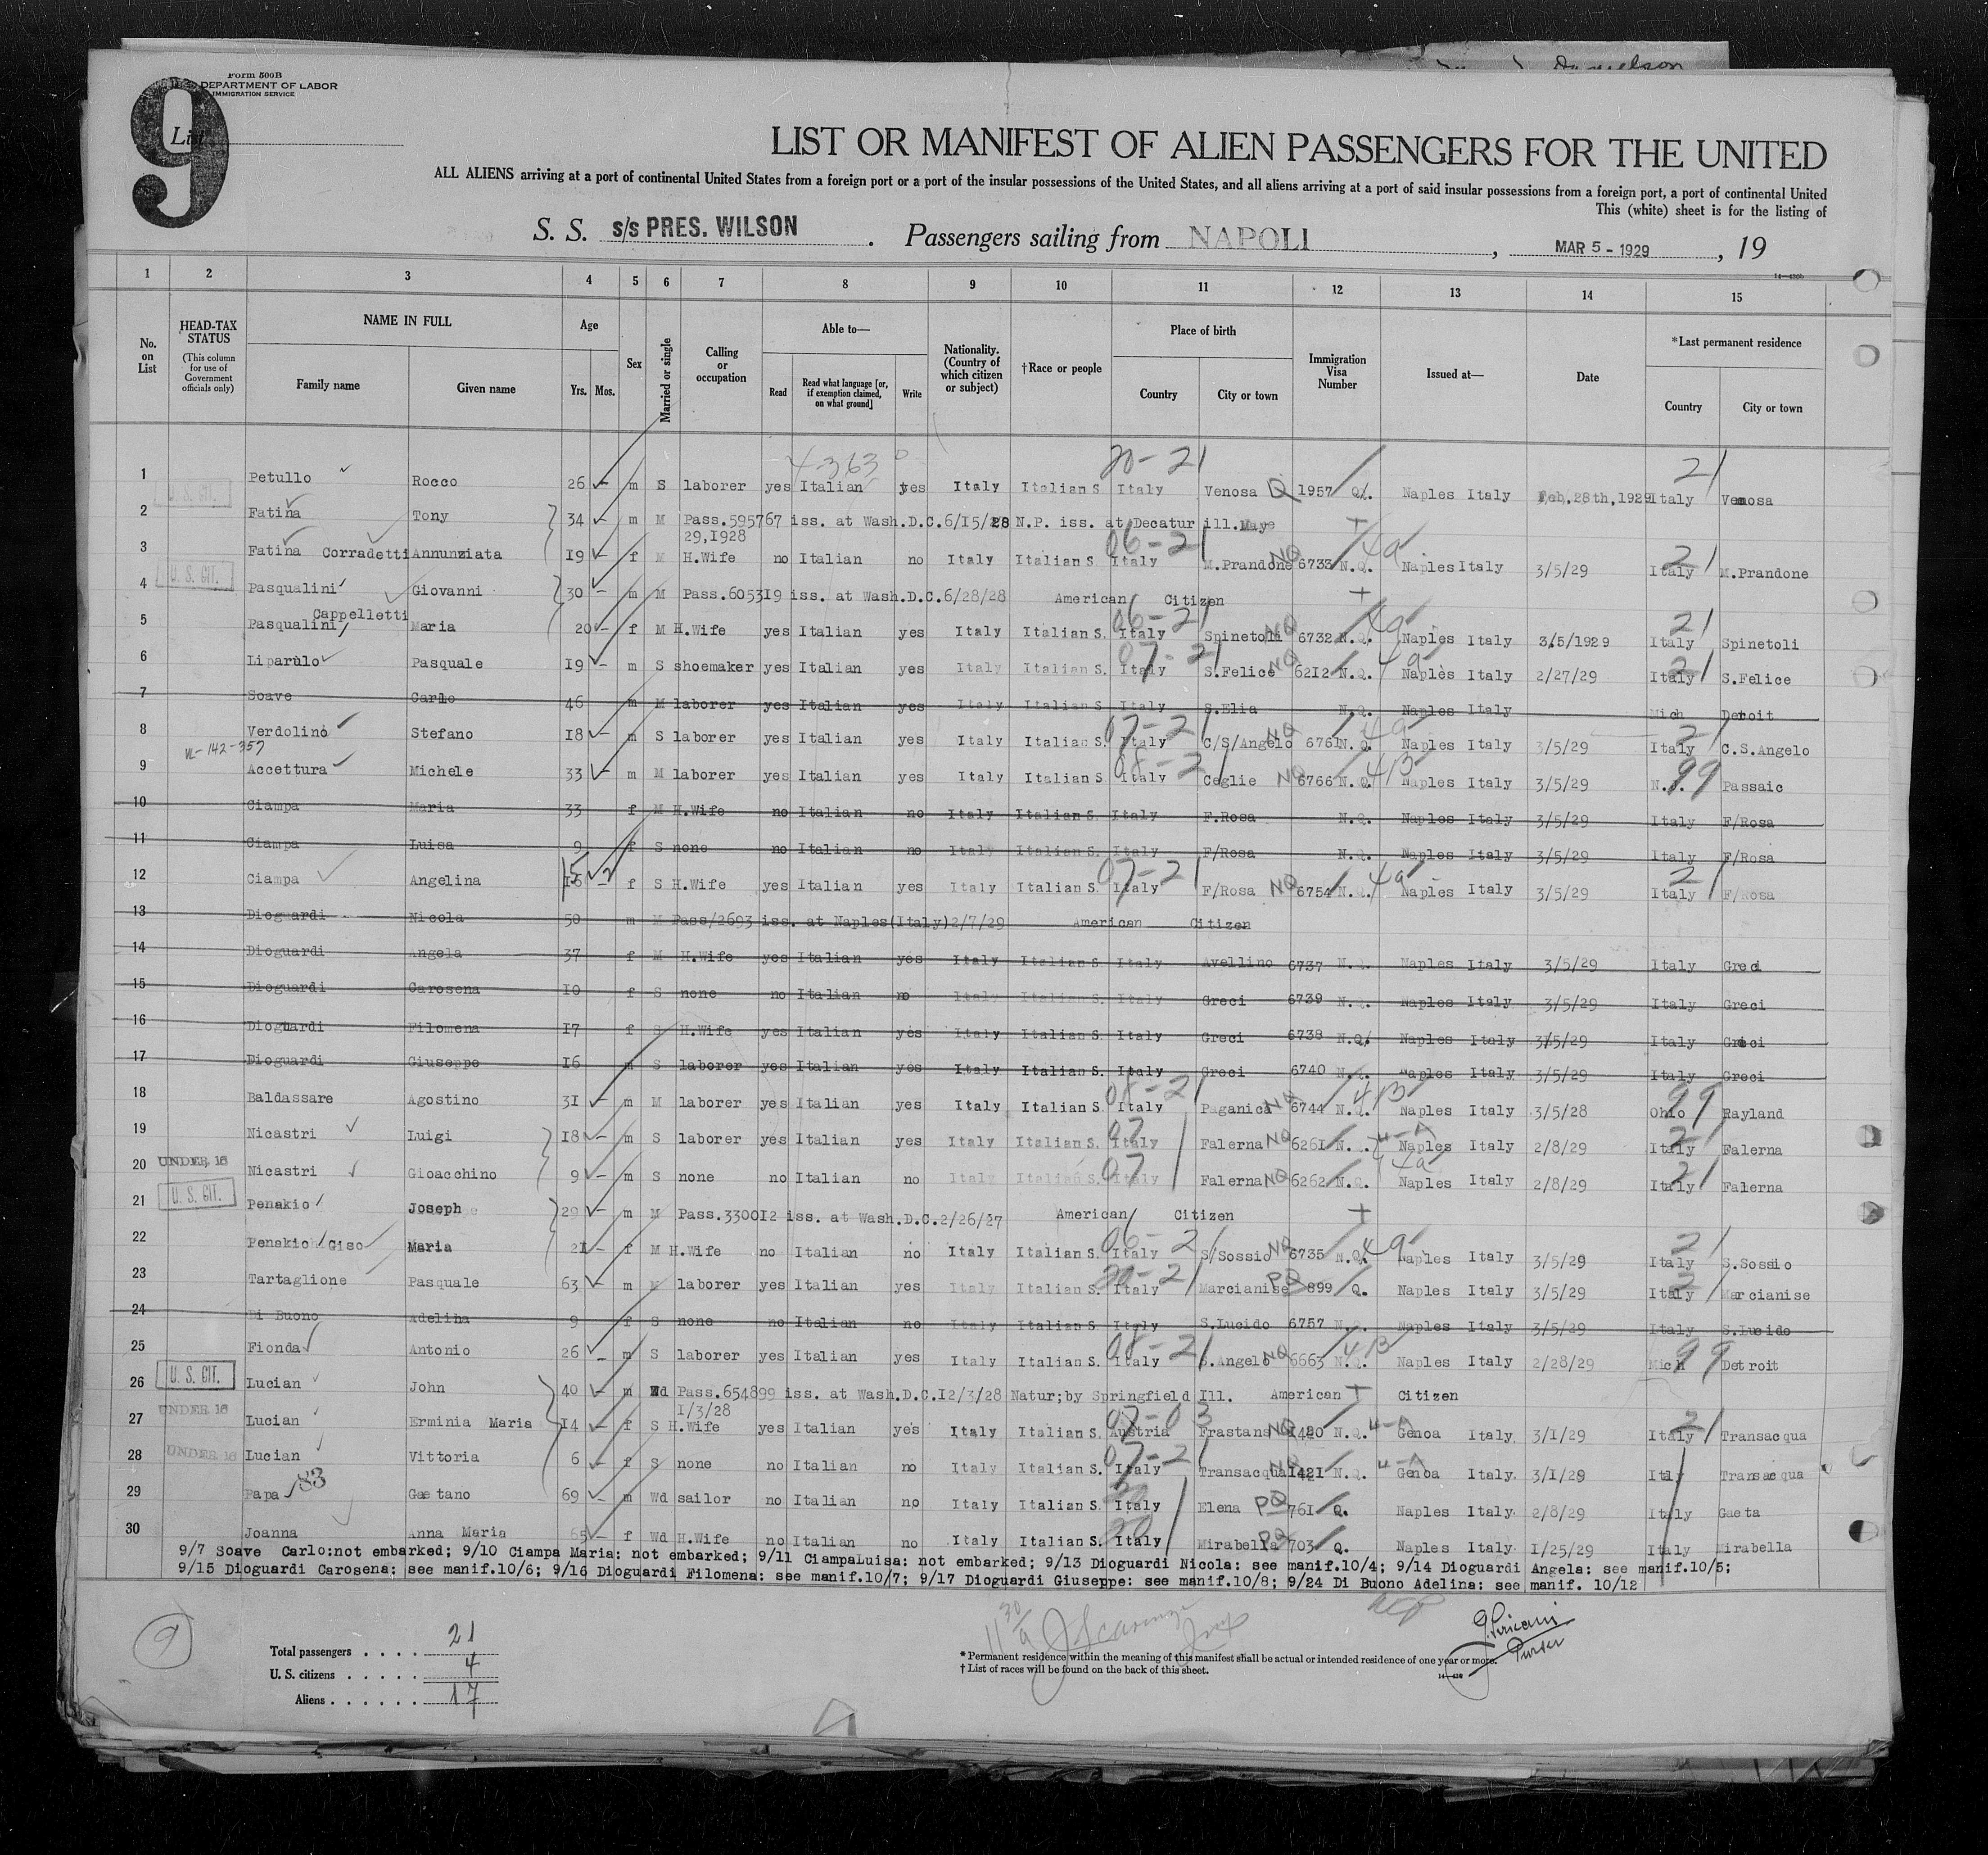 Danielson
Form 500B
DEPARTMENT OF LABOR
IMMIGRATION SERVICE
9
List
LIST OR MANIFEST OF ALIEN PASSENGERS FOR THE UNITED
ALL ALIENS arriving at a port of continental United States from a foreign port or a port of the insular possessions of the United States, and all aliens arriving at a port of said insular possessions from a foreign port, a port of continental United
This (white) sheet is for the listing of
S. S. s/s PRES. WILSON . Passengers sailing from NAPOLI , MAR 5 - 1929 , 19
14—430b
1 2 3 4 5 6 7 8 9 10 11 12 13 14 15
No. on List
HEAD-TAX STATUS (This column for use of Government officials only)
NAME IN FULL
Family name Given name
Age
Yrs. Mos.
Sex
Married or single
Calling or occupation
Able to—
Read Read what language [or, if exemption claimed, on what ground] Write
Nationality. (Country of which citizen or subject)
†Race or people
Place of birth
Country City or town
Immigration Visa Number
Issued at—
Date
*Last permanent residence
Country City or town
4-363 20-21 21
1 Petullo Rocco 26 - m S laborer yes Italian yes Italy Italian S Italy Venosa Q 1957 Q. Naples Italy Feb,28th,1929 Italy Venosa
U. S. CIT.
2 Fatina Tony 34 - m M Pass.595767 iss. at Wash.D.C.6/15/28 N.P. iss. at Decatur ill. Maye
29,1928 06-21
3 Fatina Corradetti Annunziata 19 - f M H.Wife no Italian no Italy Italian S. Italy M.Prandone NQ 6733 N.Q. 4a Naples Italy 3/5/29 Italy 21 M.Prandone
U. S. CIT.
4 Pasqualini Giovanni 30 - m M Pass.605319 iss. at Wash.D.C.6/28/28 American Citizen
Cappelletti 06-21
5 Pasqualini Maria 20 - f M H.Wife yes Italian yes Italy Italian S. Italy Spinetoli NQ 6732 N.Q. 4a Naples Italy 3/5/1929 Italy 21 Spinetoli
6 Liparulo Pasquale 19 - m S shoemaker yes Italian yes Italy Italian S. Italy 07-21 S.Felice NQ 6212 N.Q. 4a Naples Italy 2/27/29 Italy 21 S.Felice
7 Soave Carlo 46 m M laborer yes Italian yes Italy Italian S Italy S.Elia N.Q. Naples Italy Mich Detroit
8 Verdolino Stefano 18 - m S laborer yes Italian yes Italy Italian S. Italy 07-21 C/S/Angelo NQ 6761 N.Q. 4a Naples Italy 3/5/29 Italy 21 C.S.Angelo
VL-142-357
9 Accettura Michele 33 - m M laborer yes Italian yes Italy Italian S Italy 08-21 Ceglie NQ 6766 N.Q. 4B Naples Italy 3/5/29 N.J. 99 Passaic
10 Ciampa Maria 33 f M H.Wife no Italian no Italy Italian S. Italy F.Rosa N.Q. Naples Italy 3/5/29 Italy F/Rosa
11 Ciampa Luisa 9 f S none no Italian no Italy Italian S. Italy F/Rosa N.Q. Naples Italy 3/5/29 Italy F/Rosa
12 Ciampa Angelina 16 - f S H.Wife yes Italian yes Italy Italian S. Italy 07-21 F/Rosa NQ 6754 N.Q. 4a Naples Italy 3/5/29 Italy 21 F/Rosa
13 Dioguardi Nicola 50 m M Pass/2693 iss. at Naples(Italy)2/7/29 American Citizen
14 Dioguardi Angela 37 f M H.Wife yes Italian yes Italy Italian S. Italy Avellino 6737 N.Q. Naples Italy 3/5/29 Italy Greci
15 Dioguardi Carosena 10 f S none no Italian no Italy Italian S. Italy Greci 6739 N.Q. Naples Italy 3/5/29 Italy Greci
16 Dioguardi Filomena 17 f S H.Wife yes Italian yes Italy Italian S. Italy Greci 6738 N.Q. Naples Italy 3/5/29 Italy Greci
17 Dioguardi Giuseppe 16 m S laborer yes Italian yes Italy Italian S. Italy Greci 6740 N.Q. Naples Italy 3/5/29 Italy Greci
18 Baldassare Agostino 31 - m M laborer yes Italian yes Italy Italian S Italy 08-21 Paganica NQ 6744 N.Q. 4B Naples Italy 3/5/28 Ohio 99 Rayland
19 Nicastri Luigi 18 - m S laborer yes Italian yes Italy Italian S. Italy 07 Falerna NQ 6261 N. 4-A Naples Italy 2/8/29 Italy 21 Falerna
20 UNDER 16 Nicastri Gioacchino 9 - m S none no Italian no Italy Italian S Italy 07 Falerna NQ 6262 N.Q. 4a Naples Italy 2/8/29 Italy 21 Falerna
21 U. S. CIT. Penakio Joseph 29 - m M Pass.330012 iss. at Wash.D.C.2/26/27 American Citizen
22 Penakio Giso Maria 21 - f M H.Wife no Italian no Italy Italian S. Italy 06-2 S/Sossio NQ 6735 N.Q. 4a Naples Italy 3/5/29 Italy 21 S.Sossio
23 Tartaglione Pasquale 63 - m M laborer yes Italian yes Italy Italian S. Italy 20-21 Marcianise PQ 899 Q. Naples Italy 3/5/29 Italy 21 Marcianise
24 Di Buono Adelina 9 f S none no Italian no Italy Italian S Italy S.Lucido 6757 N. Naples Italy 3/5/29 Italy S.Lucido
25 Fionda Antonio 26 - m S laborer yes Italian yes Italy Italian S. Italy 08-21 S.Angelo NQ 6663 N.Q. 4B Naples Italy 2/28/29 Mich 99 Detroit
26 U. S. CIT. Lucian John 40 - m Wd Pass.654899 iss. at Wash.D.C.12/3/28 Natur;by Springfield Ill. American Citizen
UNDER 16 1/3/28
27 Lucian Erminia Maria 14 - f S H.Wife yes Italian yes Italy Italian S. Austria 07-03 Frastans NQ 1420 N.Q. 4-A Genoa Italy. 3/1/29 Italy 21 Transacqua
28 UNDER 16 Lucian Vittoria 6 - f S none no Italian no Italy Italian S. Italy 07-21 Transacqua NQ 1421 N.Q. 4-A Genoa Italy. 3/1/29 Italy Transacqua
29 Papa 183 Gaetano 69 - m Wd sailor no Italian no Italy Italian S. Italy Elena PQ 761 Q. Naples Italy. 2/8/29 Italy Gaeta
30 Joanna Anna Maria 65 - f Wd H.Wife no Italian no Italy Italian S. Italy 20 Mirabella PQ 703 Q. Naples Italy. 1/25/29 Italy Mirabella
9/7 Soave Carlo:not embarked; 9/10 Ciampa Maria: not embarked; 9/11 CiampaLuisa: not embarked; 9/13 Dioguardi Nicola: see manif.10/4; 9/14 Dioguardi Angela: see manif.10/5;
9/15 Dioguardi Carosena: see manif.10/6; 9/16 Dioguardi Filomena: see manif.10/7; 9/17 Dioguardi Giuseppe: see manif.10/8; 9/24 Di Buono Adelina: see manif. 10/12
9
Total passengers . . . . 21
U. S. citizens . . . . . 4
Aliens . . . . . . 17
11 30/a
Purser
* Permanent residence within the meaning of this manifest shall be actual or intended residence of one year or more.
† List of races will be found on the back of this sheet.
14—430